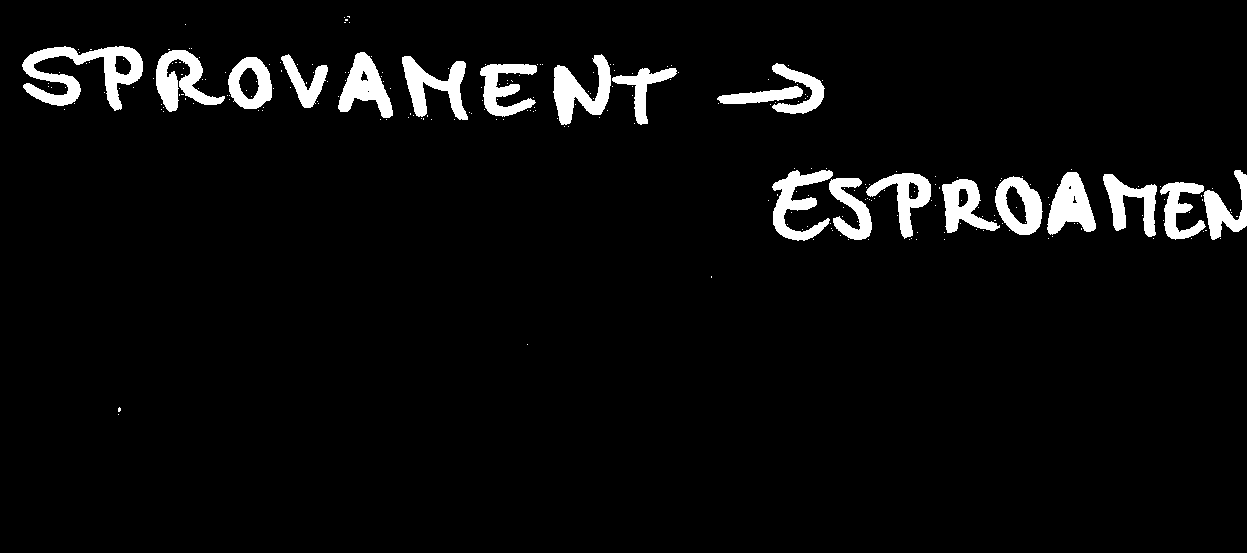 SPROVAMENT →
ESPROAMEN